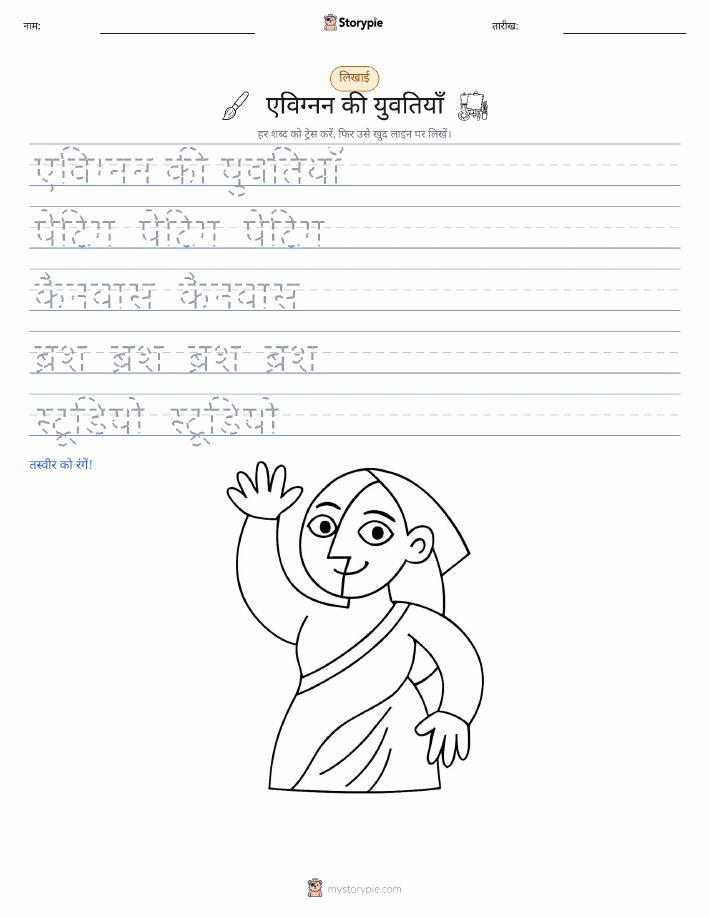 नाम:
Storypie
तारीख:
लिखाई
एविग्नन की युवतियाँ
हर शब्द को ट्रेस करें, फिर उसे खुद लाइन पर लिखें।
एविग्नन की युवतियाँ
पेंटिंग पेंटिंग पेंटिंग
कैनवास कैनवास
ब्रश ब्रश ब्रश ब्रश
स्टूडियो स्टूडियो
तस्वीर को रंगें!
mystorypie.com